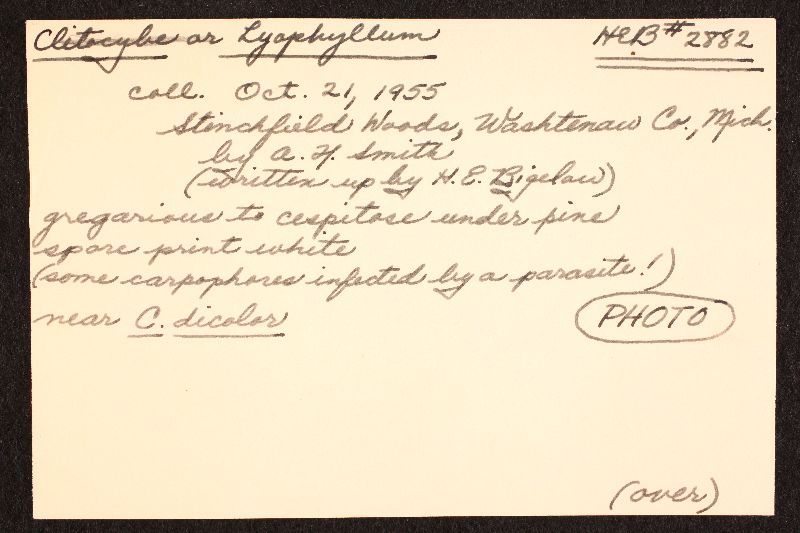 Clitocybe or Lyophyllum HEB# 2882
coll. Oct. 21, 1955
Stinchfield Woods, Washtenaw Co., Mich.
by A. H. Smith
(written up by H. E. Bigelow)
gregarious to cespitose under pine
spore print white
(some carpophores infected by a parasite!)
near C. dicolor PHOTO
(over)